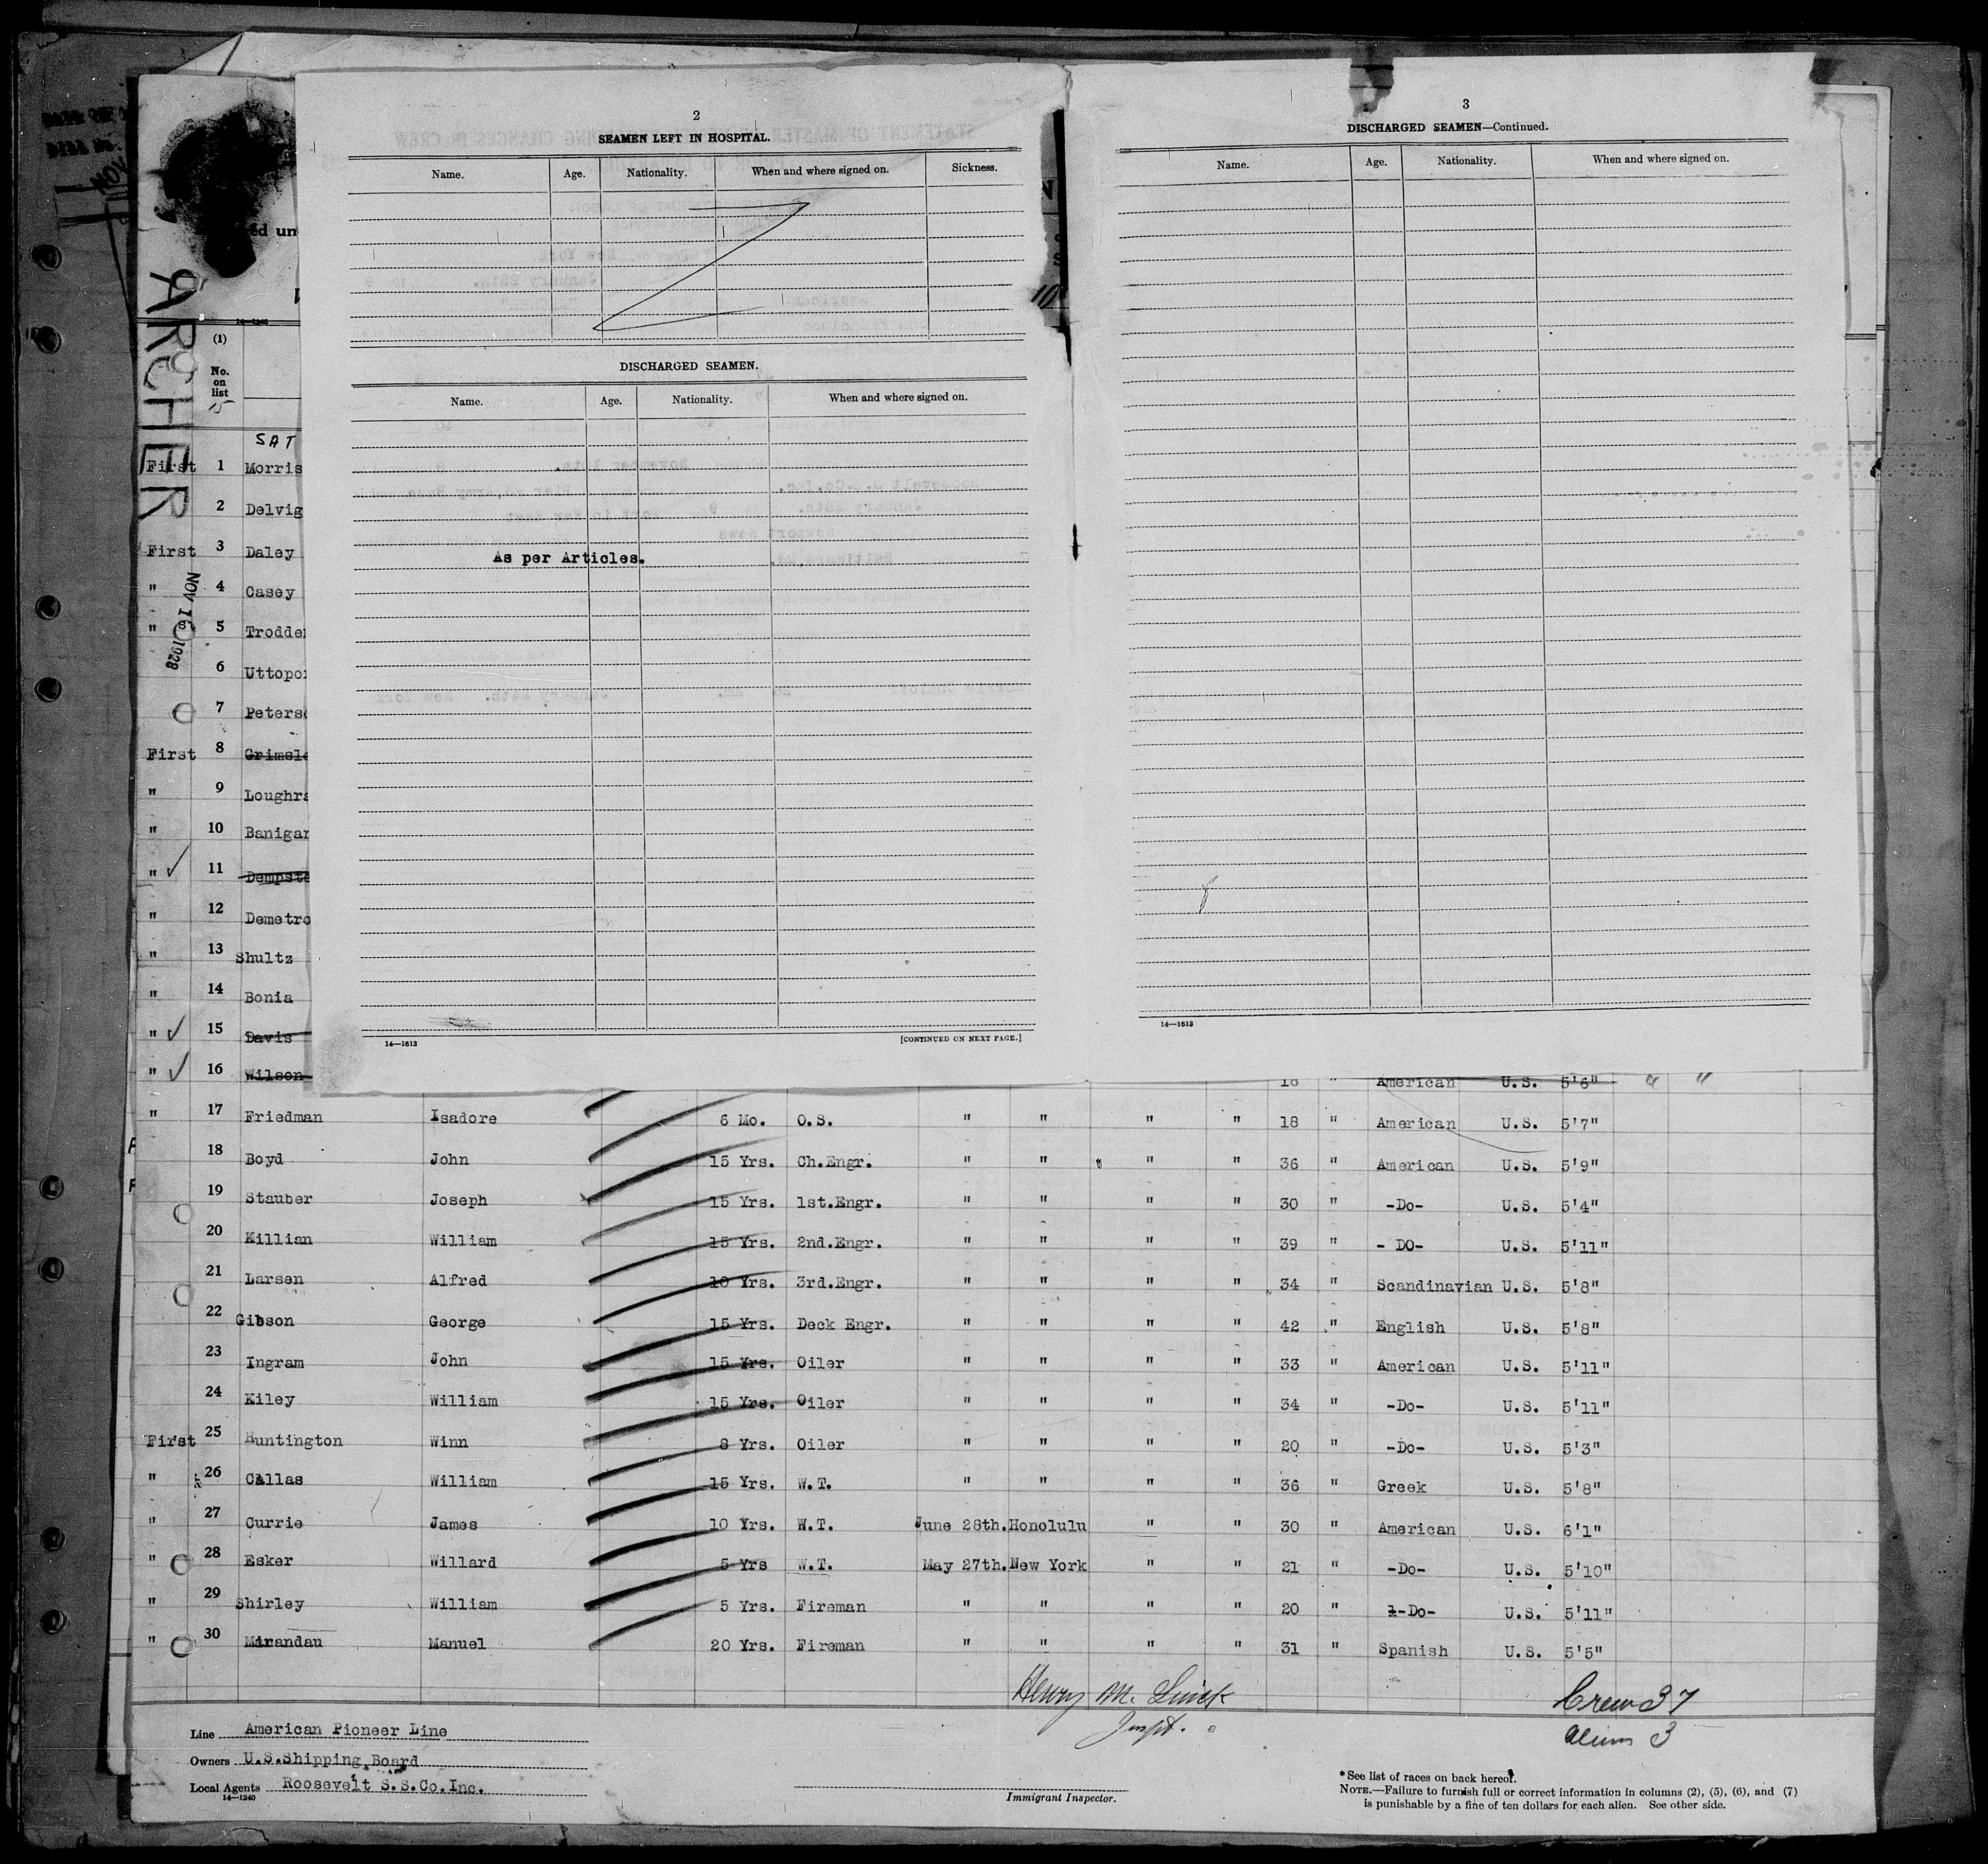 2
SEAMEN LEFT IN HOSPITAL.
Name. Age. Nationality. When and where signed on. Sickness.
DISCHARGED SEAMEN.
Name. Age. Nationality. When and where signed on.
As per Articles.
14—1613 [CONTINUED ON NEXT PAGE.]
3
DISCHARGED SEAMEN—Continued.
Name. Age. Nationality. When and where signed on.
14—1613
ed un
ARCHER
14—1240
(1)
No. on list
SAT
NOV 16 1928
First 1 Morris
2 Delvig
First 3 Daley
" 4 Casey
" 5 Trodde
6 Uttopo
7 Peters
First 8 Grimsl
" 9 Loughr
" 10 Banigar
" 11 Dempst
" 12 Demetro
" 13 Shultz
" 14 Bonia
" 15 Davis
" 16 Wilson 18 " American U.S. 5'6" " "
" 17 Friedman Isadore 6 Mo. O.S. " " " " 18 " American U.S. 5'7"
18 Boyd John 15 Yrs. Ch.Engr. " " " " 36 " American U.S. 5'9"
19 Stauber Joseph 15 Yrs. 1st.Engr. " " " " 30 " -Do- U.S. 5'4"
20 Killian William 15 Yrs. 2nd.Engr. " " " " 39 " - DO- U.S. 5'11"
21 Larsen Alfred 10 Yrs. 3rd.Engr. " " " " 34 " Scandinavian U.S. 5'8"
22 Gibson George 15 Yrs. Deck Engr. " " " " 42 " English U.S. 5'8"
23 Ingram John 15 Yrs. Oiler " " " " 33 " American U.S. 5'11"
24 Kiley William 15 Yrs. Oiler " " " " 34 " -Do- U.S. 5'11"
First 25 Huntington Winn 8 Yrs. Oiler " " " " 20 " -Do- U.S. 5'3"
" 26 Callas William 15 Yrs. W.T. " " " " 36 " Greek U.S. 5'8"
" 27 Currie James 10 Yrs. W.T. June 28th. Honolulu " " 30 " American U.S. 6'1"
" 28 Esker Willard 5 Yrs W.T. May 27th. New York " " 21 " -Do- U.S. 5'10"
" 29 Shirley William 5 Yrs. Fireman " " " " 20 " -Do- U.S. 5'11"
" 30 Mirandau Manuel 20 Yrs. Fireman " " " " 31 " Spanish U.S. 5'5"
Henry M. Crew 37
Inspt. Aliens 3
Line American Pioneer Line
Owners U.S.Shipping Board
Local Agents Roosevelt S.S.Co.Inc.
14—1240
Immigrant Inspector.
* See list of races on back hereof.
NOTE.—Failure to furnish full or correct information in columns (2), (5), (6), and (7)
is punishable by a fine of ten dollars for each alien. See other side.